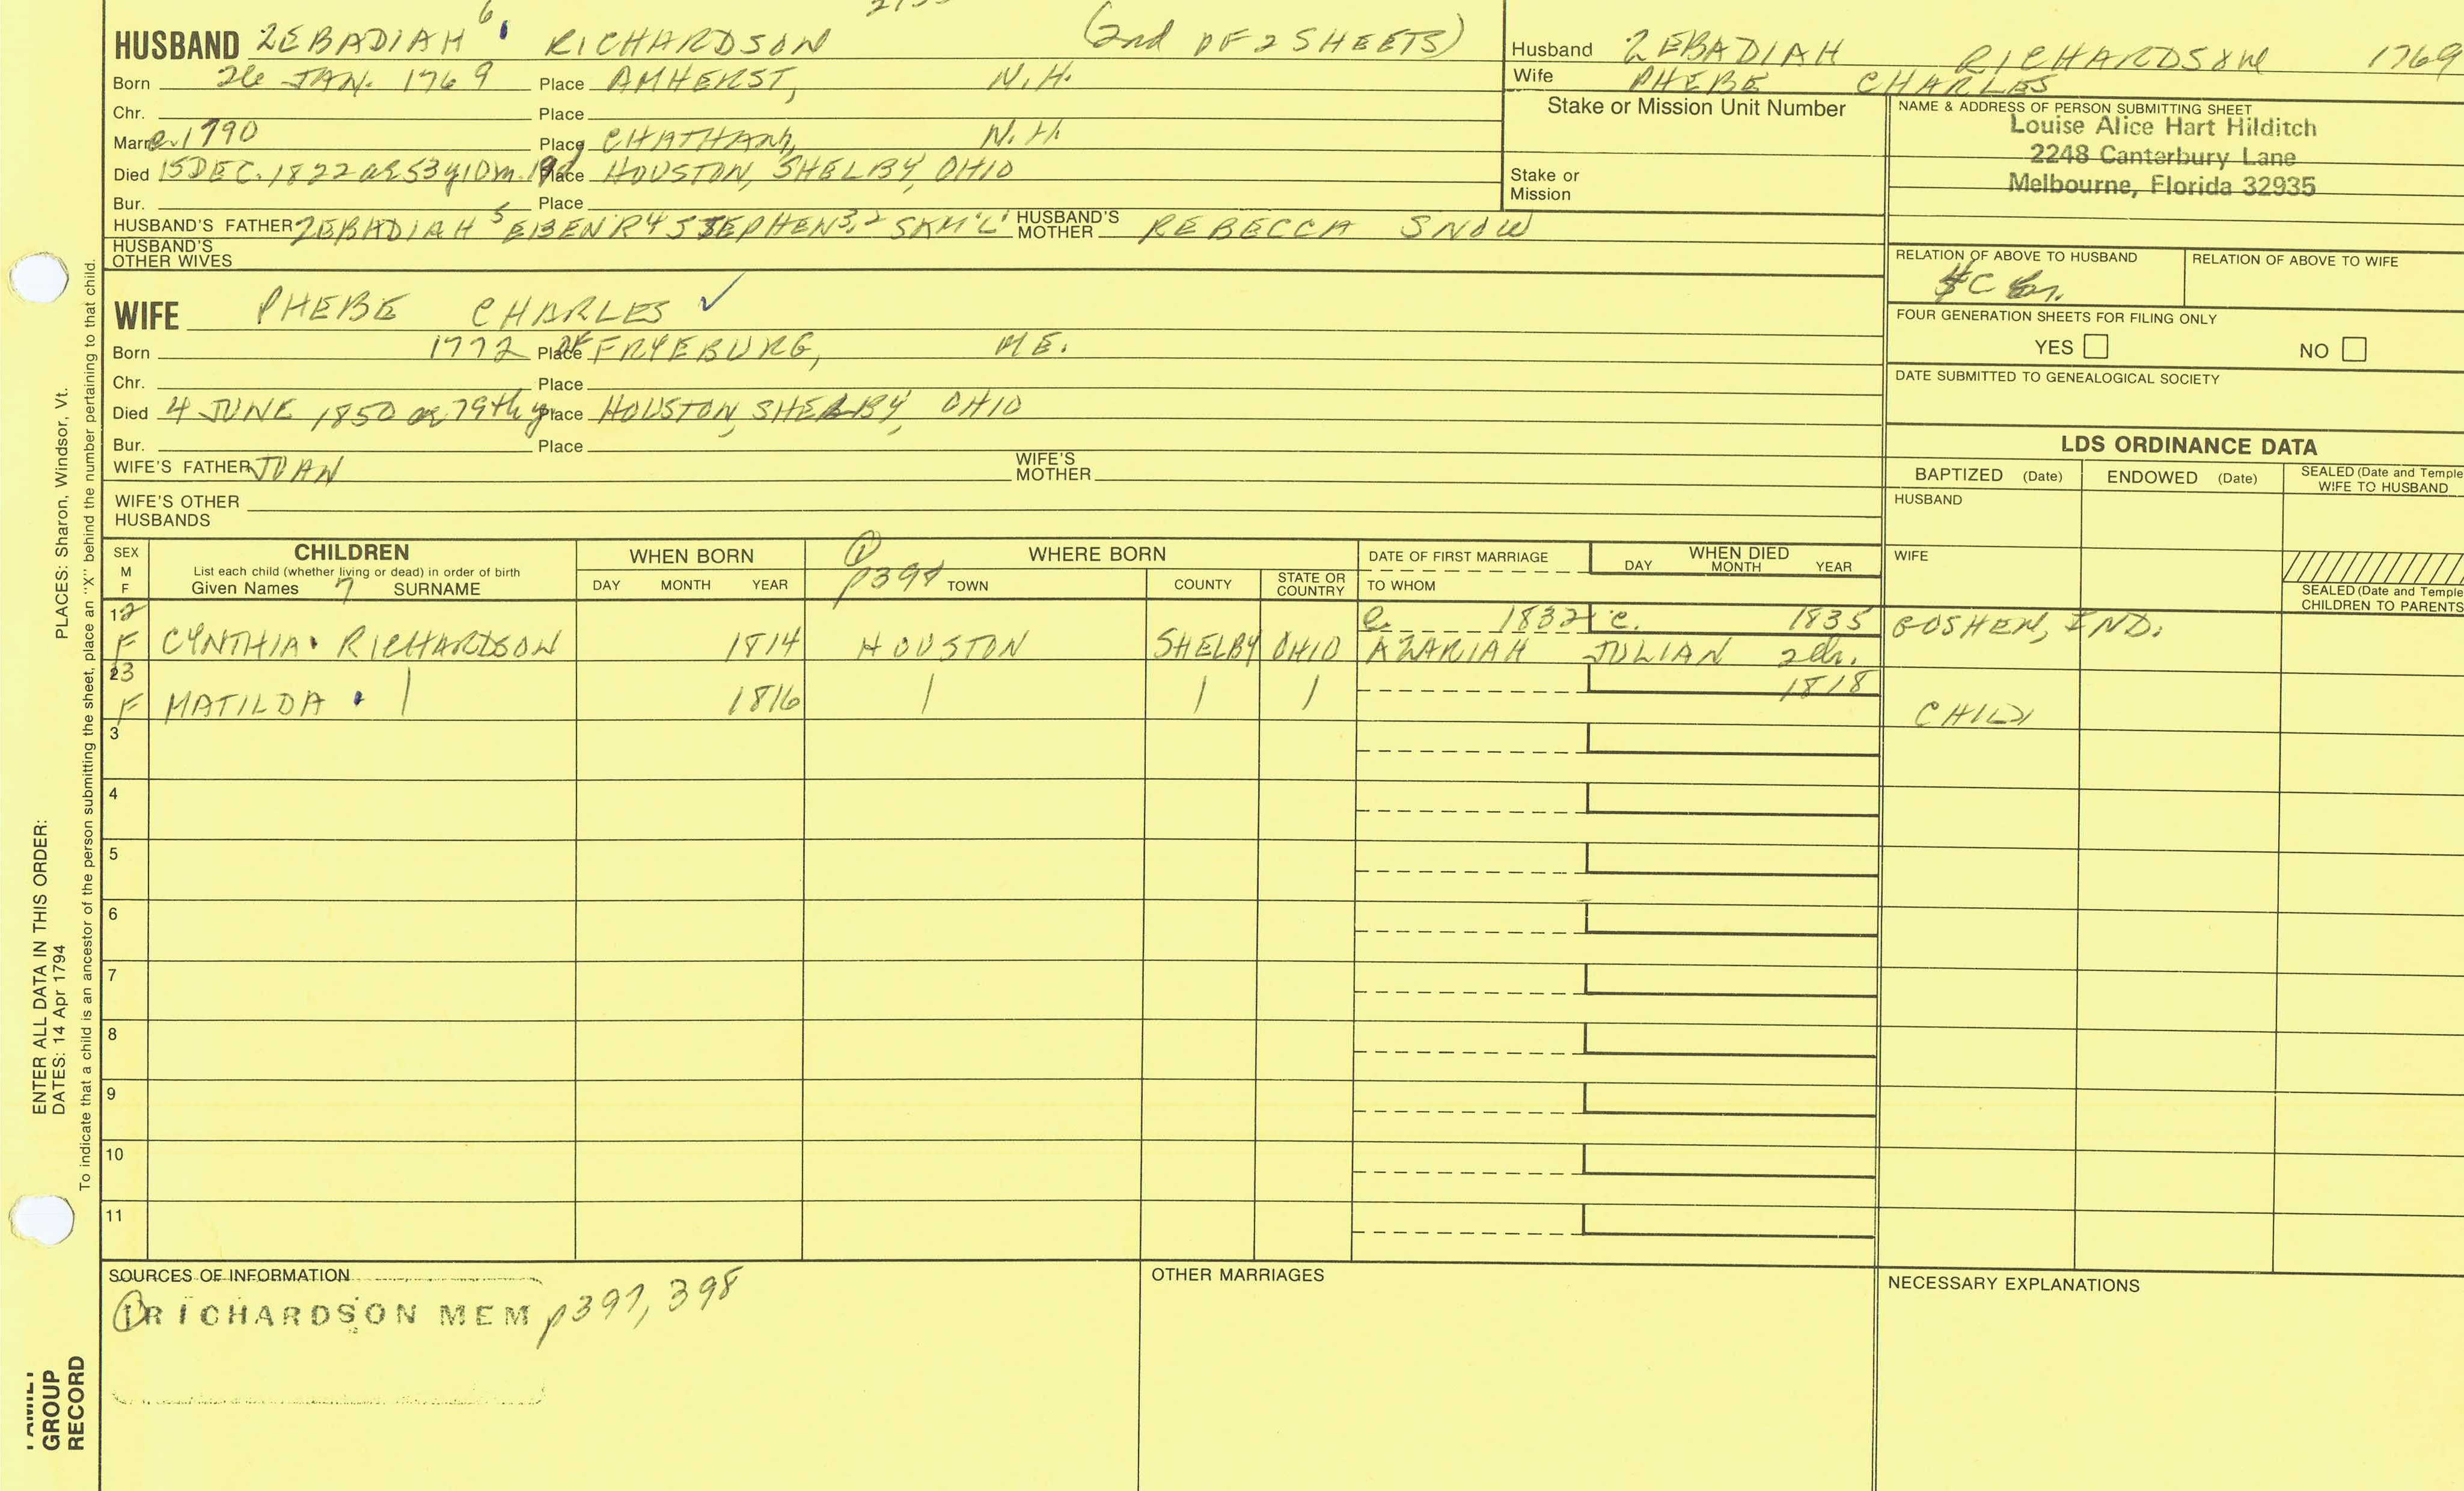 HUSBAND ZEBADIAH 6 RICHARDSON (2nd OF 2 SHEETS)
Born 26 JAN. 1769 Place AMHERST, N.H.
Chr. Place
Marr. c. 1790 Place CHATHAM, N.H.
Died 15 DEC. 1822 ae 53y10m.19d Place HOUSTON, SHELBY, OHIO
Bur. Place
HUSBAND'S FATHER ZEBADIAH 5 EBENR 4 STEPHEN 3,2 SAM'L 1 HUSBAND'S MOTHER REBECCA SNOW
HUSBAND'S OTHER WIVES
WIFE PHEBE CHARLES ✓
Born 1772 Place of FRYEBURG, ME.
Chr. Place
Died 4 JUNE 1850 ae 79th y Place HOUSTON, SHELBY, OHIO
Bur. Place
WIFE'S FATHER JOAN WIFE'S MOTHER
WIFE'S OTHER HUSBANDS
Husband ZEBADIAH RICHARDSON 1769
Wife PHEBE CHARLES
Stake or Mission Unit Number
Stake or Mission
NAME & ADDRESS OF PERSON SUBMITTING SHEET
Louise Alice Hart Hilditch
2248 Canterbury Lane
Melbourne, Florida 32935
RELATION OF ABOVE TO HUSBAND RELATION OF ABOVE TO WIFE
FOUR GENERATION SHEETS FOR FILING ONLY
YES NO
DATE SUBMITTED TO GENEALOGICAL SOCIETY
LDS ORDINANCE DATA
BAPTIZED (Date) ENDOWED (Date) SEALED (Date and Temple
WIFE TO HUSBAND
HUSBAND
WIFE
SEALED (Date and Temple
CHILDREN TO PARENTS
SEX
M
F
CHILDREN
List each child (whether living or dead) in order of birth
Given Names 7 SURNAME
WHEN BORN
DAY MONTH YEAR
① p398
WHERE BORN
TOWN COUNTY STATE OR COUNTRY
DATE OF FIRST MARRIAGE
TO WHOM
WHEN DIED
DAY MONTH YEAR
12 c. 1832 c. 1835 GOSHEN, IND.
F CYNTHIA RICHARDSON 1814 HOUSTON SHELBY OHIO AZARIAH JULIAN 2ch.
23 1818
F MATILDA | 1816 | | | CHILD
3
4
5
6
7
8
9
10
11
SOURCES OF INFORMATION
① RICHARDSON MEM p397, 398
OTHER MARRIAGES
NECESSARY EXPLANATIONS
ENTER ALL DATA IN THIS ORDER:
DATES: 14 Apr 1794 PLACES: Sharon, Windsor, Vt.
To indicate that a child is an ancestor of the person submitting the sheet, place an "X" behind the number pertaining to that child.
GROUP
RECORD